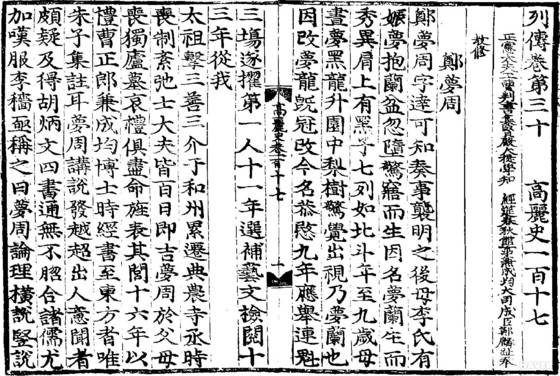 列傳卷第三十 高麗史一百十七
正憲大夫工曹判書集賢殿大提學知 經筵春秋館事兼成均大司成臣鄭麟趾奉
教修
鄭夢周
鄭夢周字達可知奏事襲明之後母李氏有
娠夢抱蘭盆忽墮驚寤而生因名夢蘭生而
秀異肩上有黑子七列如北斗年至九歲母
晝夢黑龍升園中梨樹驚覺出視乃夢蘭也
因改夢龍旣冠改今名恭愍九年應擧連魁
高麗史卷百十七
三場遂擢第一人十一年選補藝文檢閱十
三年從我
太祖擊三善三介于和州累遷典農寺丞時
喪制紊弛士大夫皆百日即吉夢周於父母
喪獨廬墓哀禮俱盡命旌表其閭十六年以
禮曹正郎兼成均博士時經書至東方者唯
朱子集註耳夢周講說發越超出人意聞者
頗疑及得胡炳文四書通無不脗合諸儒尤
加嘆服李穡亟稱之曰夢周論理橫說竪說